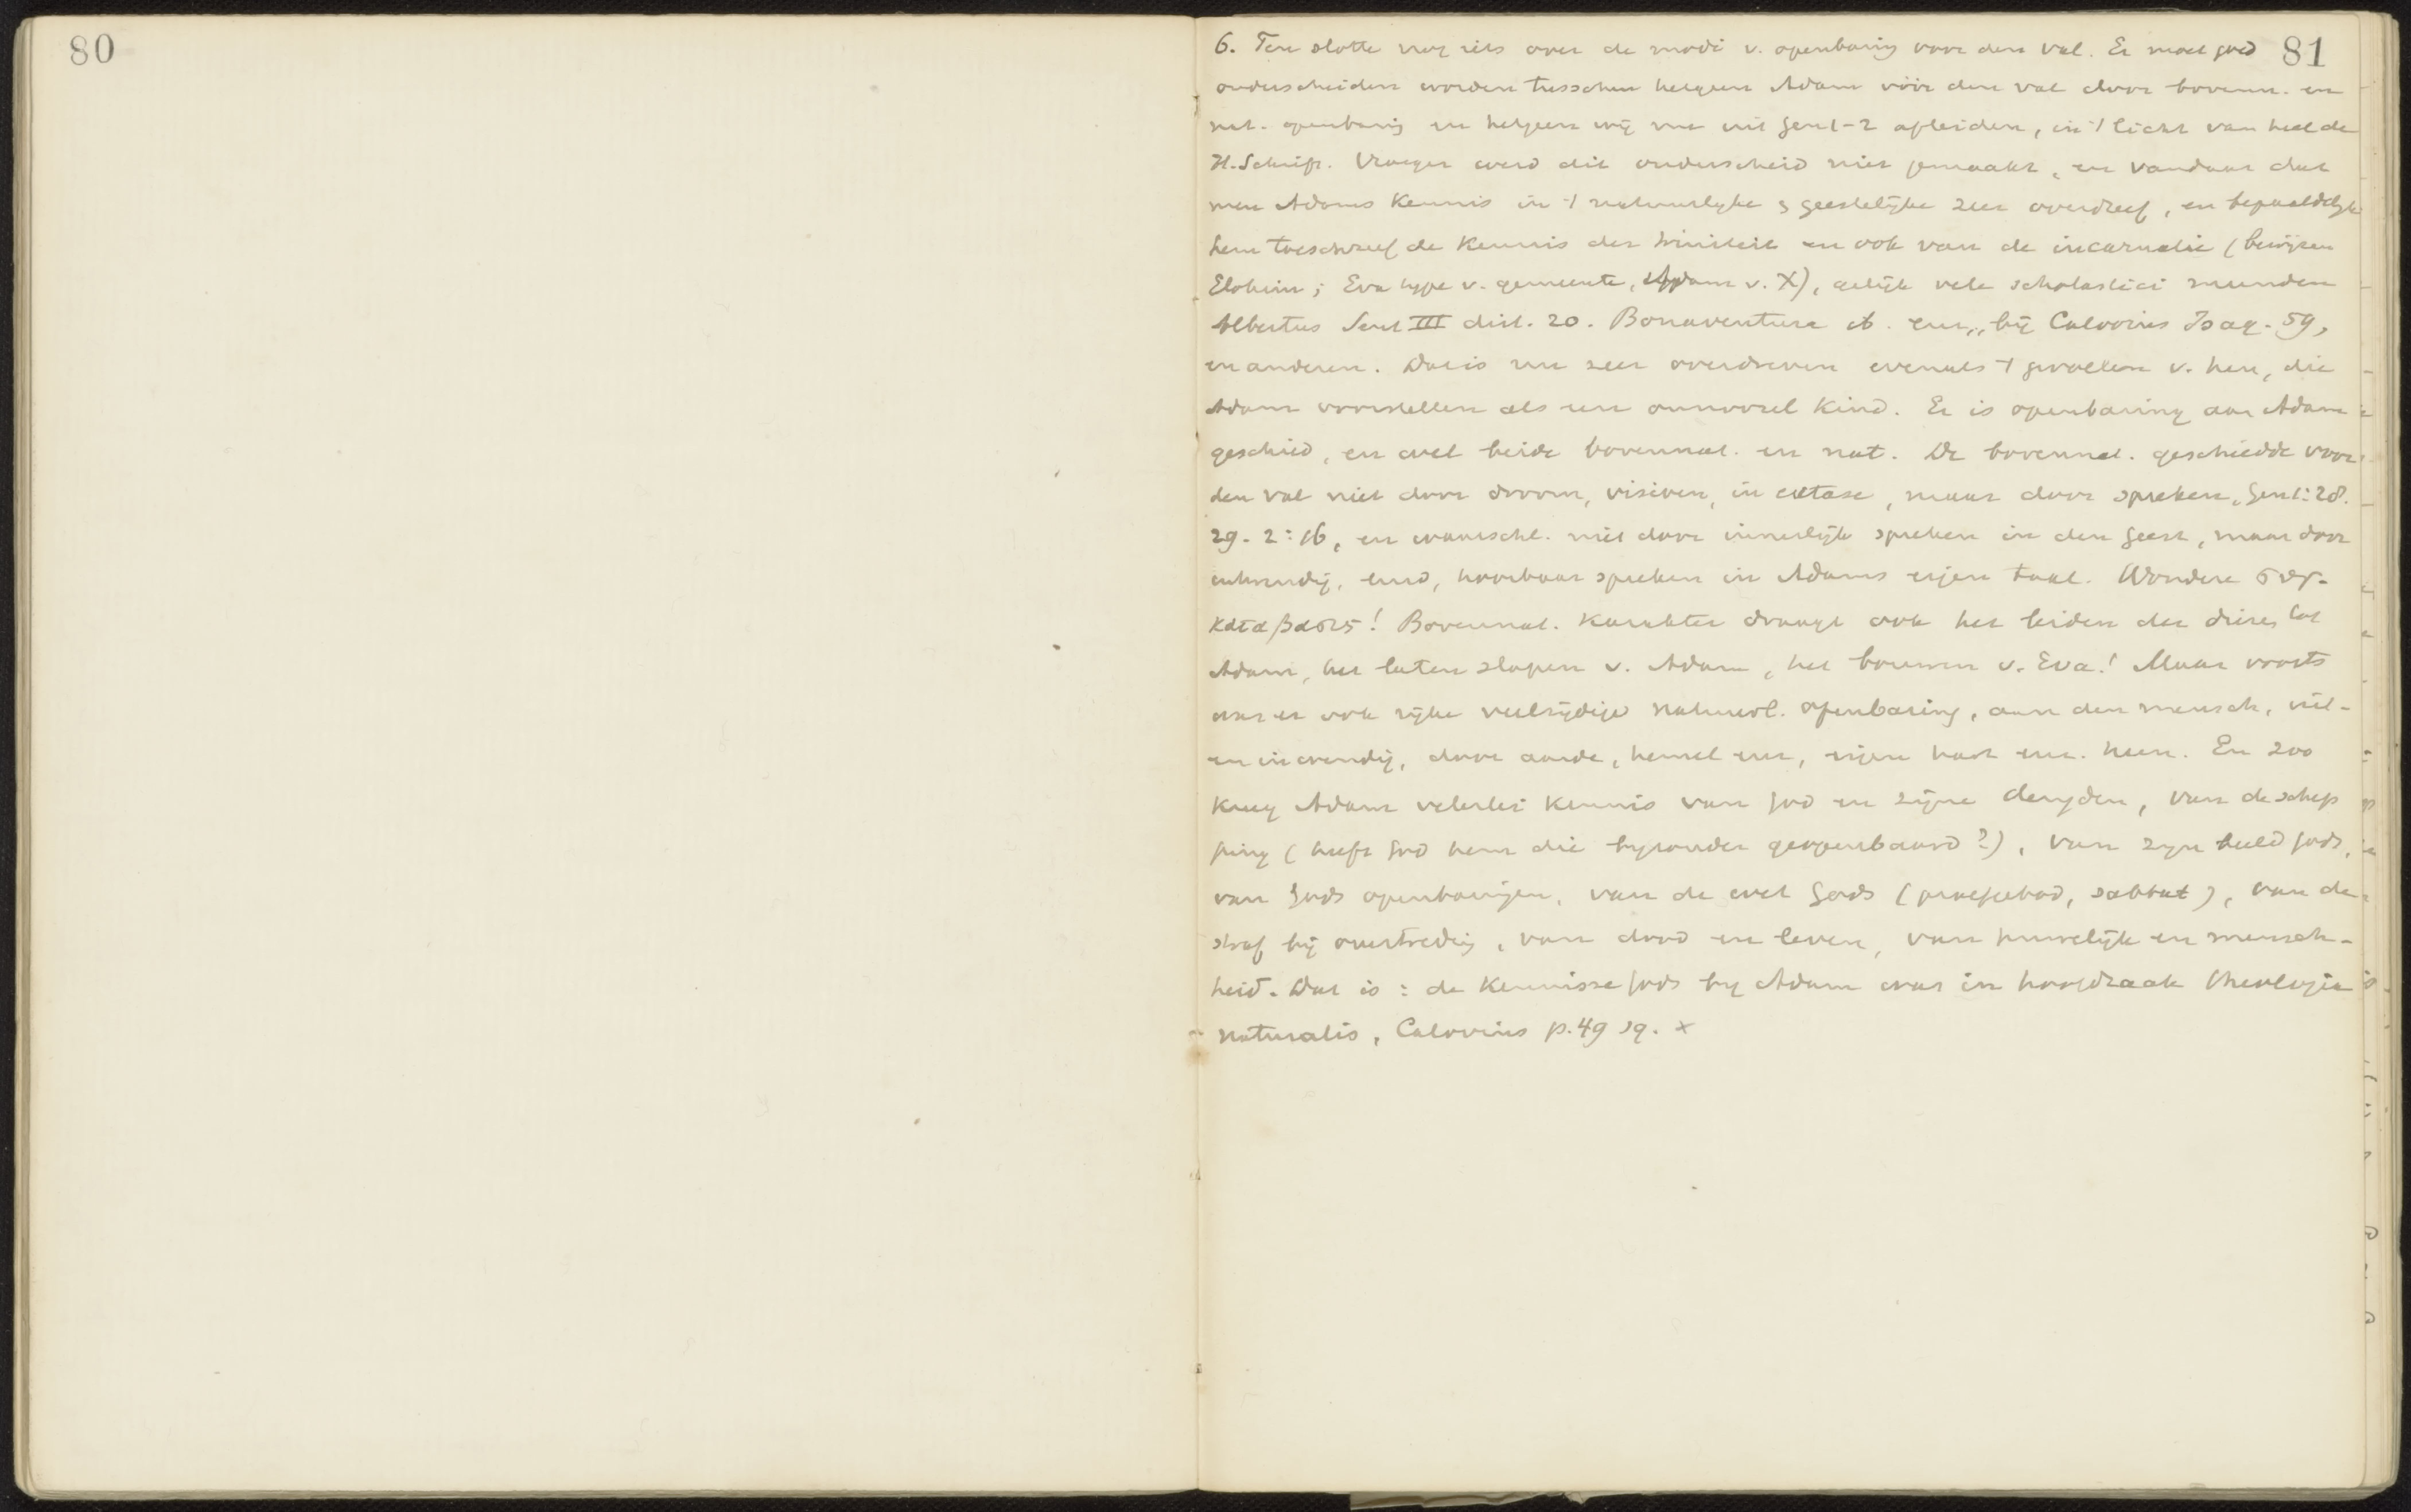 80
81
6. Ten slotte nog iets over de modi v. openbaring voor den val. Er moet goed
onderscheiden worden tusschen hetgeen Adam vóór den val door bovenn. en
nat. openbaring en hetgeen wij nu uit Gen 1-2 afleiden, in 't licht van heel de
H. Schrift. Vroeger werd dit onderscheid niet gemaakt, en vandaar dat
men Adams Kennis in 't natuurlyke & geestelijke zeer overdreef, en bepaaldelyk
hem toeschreef de Kennis der triniteit en ook van de incarnatie (bewijzen
Elohim; Eva type v. gemeente, Adam v. X), gelijk vele scholastici meenden
Albertus Sent III dist. 20. Bonaventura ib. enz., bij Calovius Isag. 59,
en anderen. Dat is nu zeer overdreven evenals 't gevoelen v. hen, die
Adam voorstellen als een onnoozel Kind. Er is openbaring aan Adam
geschied, en wel beide bovennat. en nat. De bovennat. geschiedde voor
den val niet door droom, visioen, in extase, maar door spreken, Gen 1:28.
29. 2:16, en waarschl. niet door innerlijk spreken in den geest, maar door
uitwendig, hoorbaar spreken in Adams eigen taal. Wondere συγ-
καταβασις! Bovennat. Karakter draagt ook het leiden der dieren tot
Adam, het laten slapen v. Adam, het bouwen v. Eva! Maar voorts
was er ook rijke veelzijdige natuurl. openbaring, aan den mensch, uit-
en inwendig, door aarde, hemel enz, eigen hart enz. heen. En zoo
kreeg Adam velerlei Kennis van God en zijne deugden, van de schep
ping (heeft God hem die byzonder geopenbaard?), van zijn beeld Gods,
van Gods openbaringen, van de wet Gods (proefgebod, sabbat), van de
straf bij overtreding, van dood en leven, van huwelijk en mensch-
heid. Dat is: de Kennisse Gods by Adam was in hoofdzaak theologia
naturalis, Calovius p. 49 sq. x